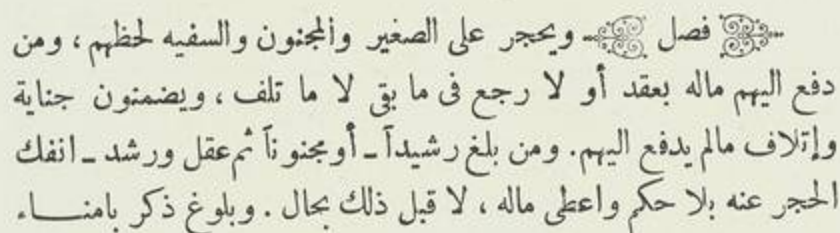 فصل ويحجر على الصغير والمجنون والسفيه لحظهم ، ومن
دفع اليهم ماله بعقد أو لا رجع فى ما بقى لا ما تلف ، ويضمنون جناية
وإتلاف مالم يدفع اليهم. ومن بلغ رشيداً ـ أو مجنوناً ثم عقل ورشد ـ انفك
الحجر عنه بلا حكم واعطى ماله ، لا قبل ذلك بحال . وبلوغ ذكر بامناء